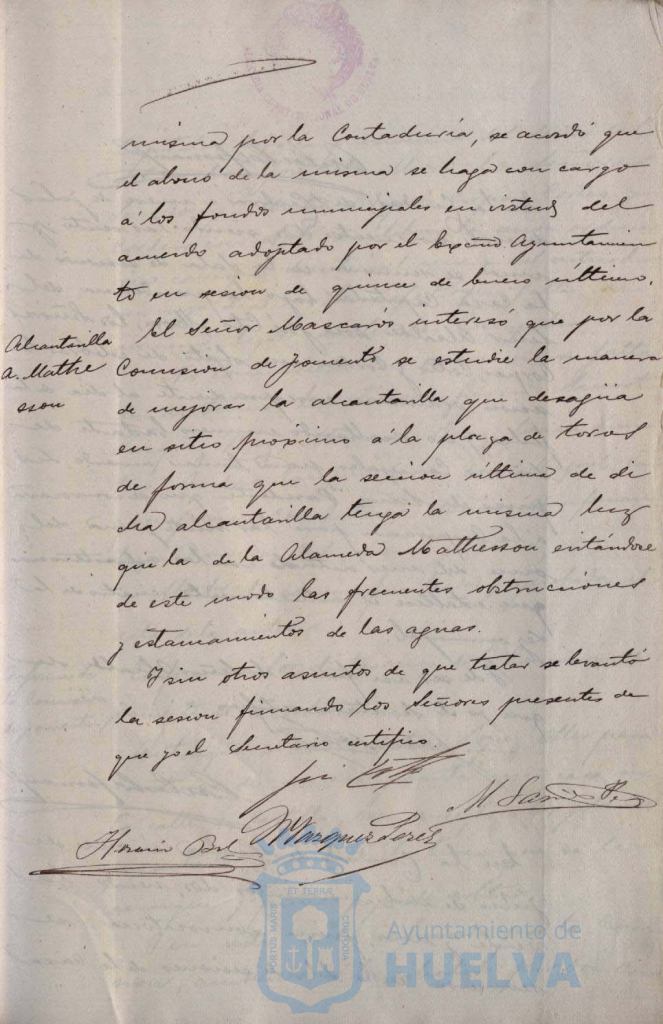 misma por la Contaduría, se acordó que
el abono de la misma se haga con cargo
á los fondos municipales en virtud del
acuerdo adoptado por el Excmo Ayuntamien
to en sesion de quince de Enero último.
El Señor Mascarós interesó que por la
Alcantarilla
A. Mathe
sson
Comision de fomento se estudie la manera
de mejorar la alcantarilla que desagüa
en sitio próximo á la plaza de toros
de forma que la seccion última de di
cha alcantarilla tenga la misma luz
que la de la Alameda Mathesson evitándose
de este modo las frecuentes obstrucciones
y estancamientos de las aguas.
Y sin otros asuntos de que tratar se levantó
la sesion firmando los Señores presentes de
que yo el Secretario certifico.
Vazquez Perez
ET TERRÆ
PORTUS MARIS
CUSTODIA
Ayuntamiento de
HUELVA